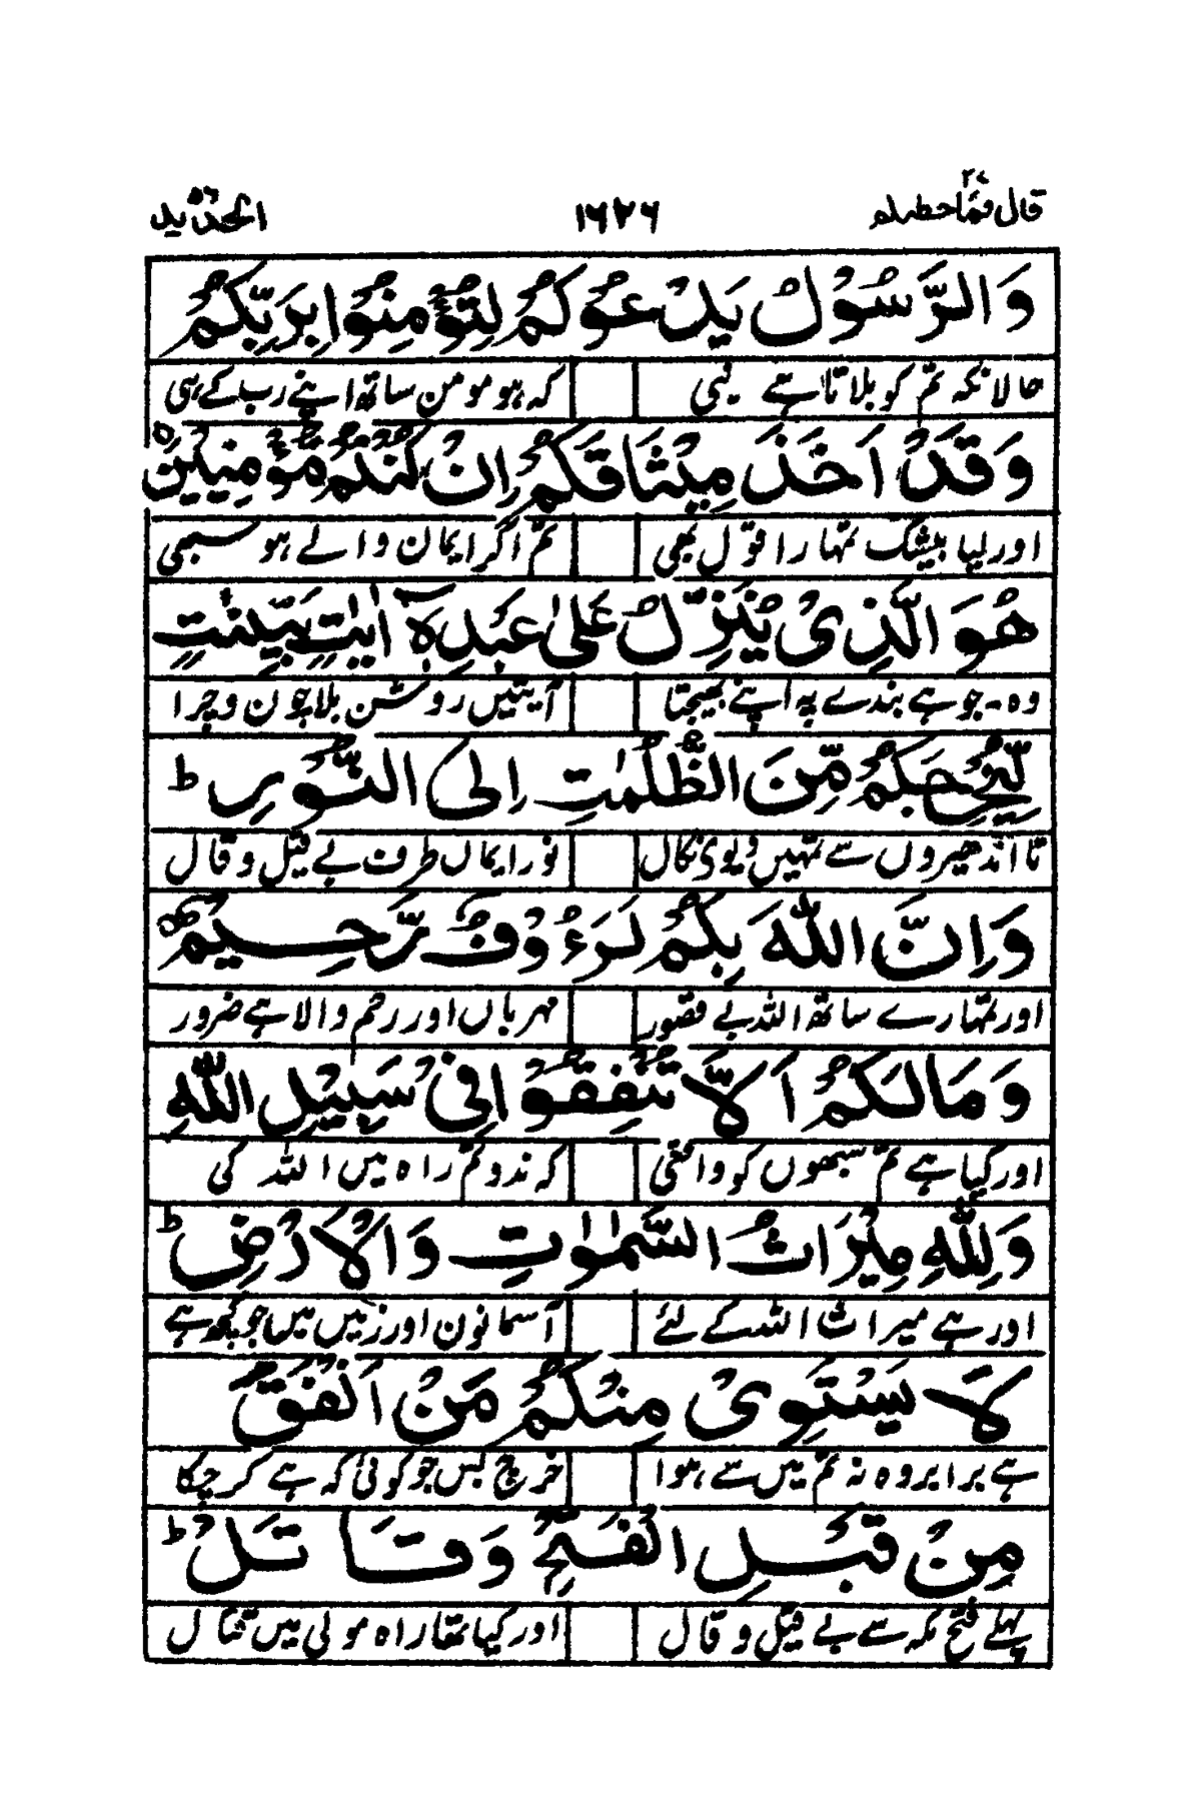 قال فما خطبکم ۲۷ ۱۶۲۶ الحدید ۵۷
وَالرَّسُوْلُ يَدْعُوْكُمْ لِتُؤْمِنُوْا بِرَبِّكُمْ
حالانکہ تم کو بلاتا ہے نبی کہ ہو مومن ساتھ اپنے رب کے ہی
وَقَدْ اَخَذَ مِيْثَاقَكُمْ اِنْ كُنْتُمْ مُّؤْمِنِيْنَ ۝
اور لیا بیشک تمہارا قول بھی تم اگر ایمان والے ہو سبھی
هُوَ الَّذِىْ يُنَزِّلُ عَلٰى عَبْدِهٖٓ اٰيٰتٍۭ بَيِّنٰتٍ
وہ۔ جو ہے بندے پہ اپنے بھیجتا آیتیں روشن بلا چون و چرا
لِّيُخْرِجَكُمْ مِّنَ الظُّلُمٰتِ اِلَى النُّوْرِ ؕ
تا اندھیروں سے تمہیں دیوے نکال نور ایماں طرف بے قیل و قال
وَاِنَّ اللّٰهَ بِكُمْ لَرَءُوْفٌ رَّحِيْمٌ ۝
اور تمہارے ساتھ اللہ بے قصور مہرباں اور رحم والا ہے ضرور
وَمَا لَكُمْ اَلَّا تُنْفِقُوْا فِىْ سَبِيْلِ اللّٰهِ
اور کیا ہے تم سبھوں کو واقعی کہ نہ دو تم راہ میں اللہ کی
وَلِلّٰهِ مِيْرَاثُ السَّمٰوٰتِ وَالْاَرْضِ ؕ
اور ہے میراث اللہ کے لئے آسمانوں اور زمیں میں جو کچھ ہے
لَا يَسْتَوِىْ مِنْكُمْ مَّنْ اَنْفَقَ
ہے برابر وہ نہ تم میں سے ہوا خرچ بس جو کوئی کہ ہے کر چکا
مِنْ قَبْلِ الْفَتْحِ وَقَاتَلَ ؕ
پہلے فتح مکہ سے بے قیل و قال اور کیا تھا راہ مولی میں قتال